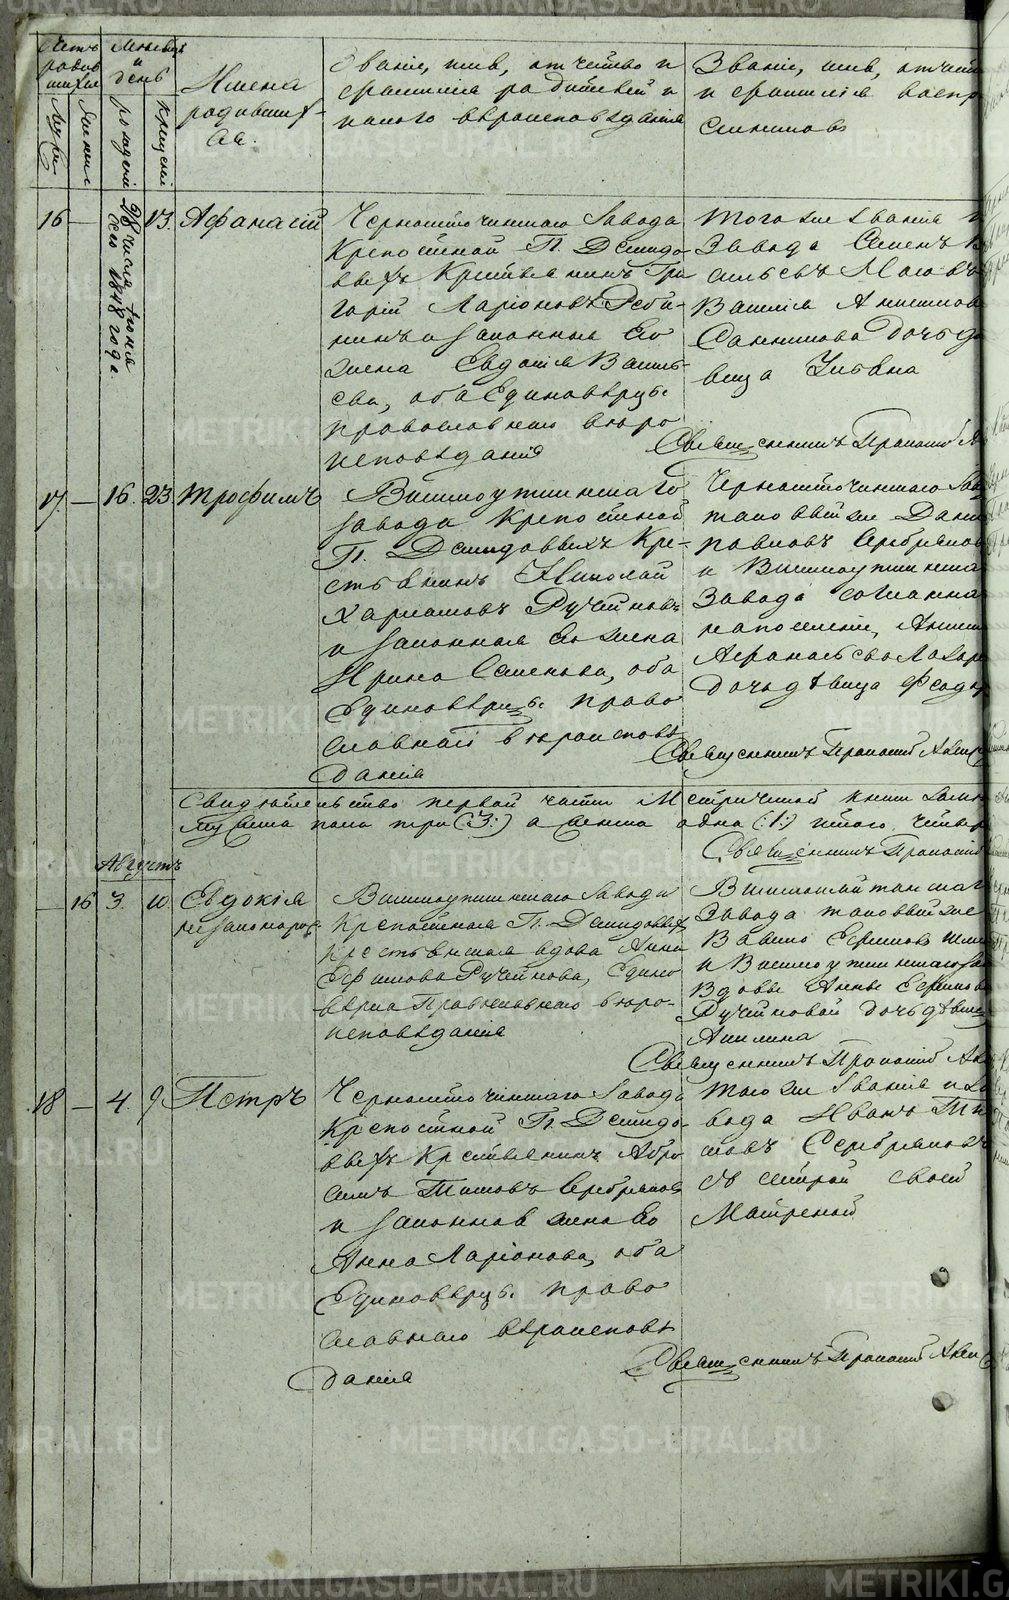 Счетъ родив шихся
Мужес
Женск
Месяцъ и день
рожденія
крещенія
Имена родивших ся.
Званіе, имя, отчество и
фамилія родителей и
какого вероисповѣданія
Званіе, имя, отчест
и фамилія воспр
емниковъ
16 — 28 числа Іюня сего 1848 года. 13. Афанасій
Черноисточинскаго Завода
Крепостной Г. Демидо
выхъ Крестьянинъ Гри
горій Ларіоновъ
и законная Его
жена Евдокія Василь
ева, оба Единоверцы
православнаго вѣро
исповѣданія
Того же званія и
Завода Семенъ В
Василія Анисимов
Санникова дочь дѣ
вица Ульяна
Священникъ Прокопій
17. — 16. 23. Трофимъ
Висимоуткинскаго
завода Крепостной
Г. Демидовыхъ Кре-
стьянинъ Николай
Харламовъ Ручкинъ
и законная Его жена
Ирина Семенова, оба
Единоверцы право
славнаго вероисповѣ
данія
Черноисточинскаго Зав
таковый же Дани
Павловъ Серебряков
и Висимоуткинска
Завода
Афанасьева Лазар
дочь дѣвица Федор
Священникъ Прокопій
Свидѣтельство первой части Метричной книги
мужеска пола три (:3:) а женска одна (:1:) итого четыр
Священникъ Прокопій
Августъ
— 16 3. 10. Евдокія
незаконорож.
Висимоуткинскаго Завода
Крепостная Г. Демидовыхъ
крестьянская вдова Анна
Ефимова Ручкинова, Едино
верка Православнаго вѣро-
исповѣданія
Висимошайтанскаг
Завода таковый же
Вавило Ефимовъ
и Висимоуткинскаго за
Вдовы Анны Ефимов
Ручкиновой дочь дѣвиц
Акилина
Священникъ Прокопій
18 — 4. 9. Петръ
Черноисточинскаго Завода
Крепостной Г. Демидо-
выхъ Крестьянинъ Абра
амъ Титовъ Серебряковъ
и законная жена Его
Анна Ларіонова, оба
Единоверцы право
славнаго вероисповѣ
данія
Того же званія и За
вода Иванъ Ти
товъ Серебряковъ
съ сестрой своей
Матреной
Священникъ Прокопій
METRIKI.GASO-URAL.RU